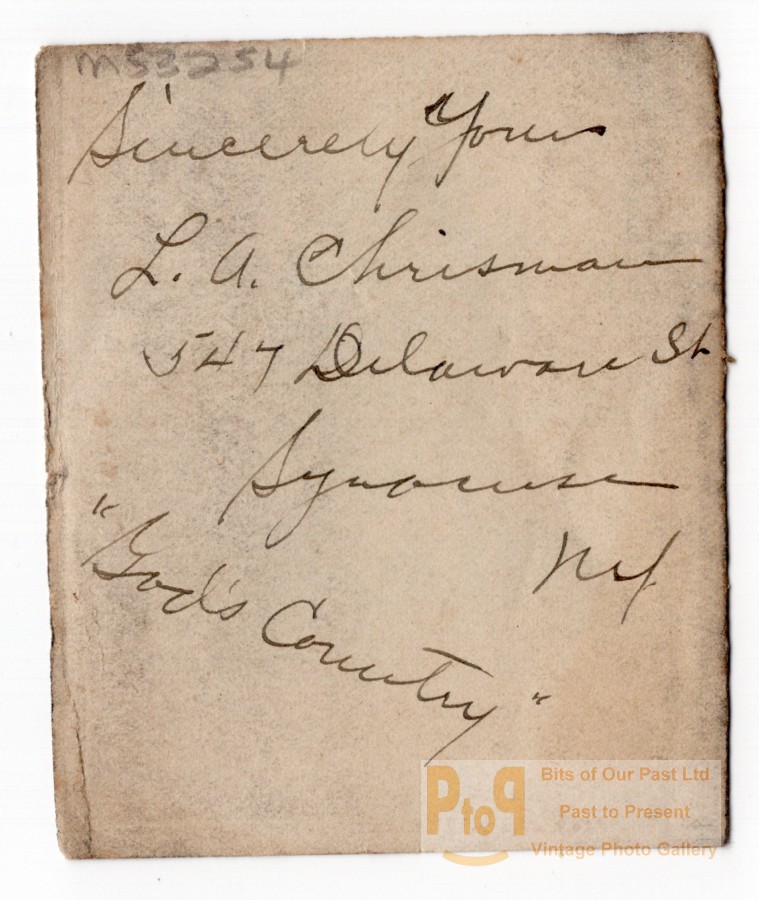 MS3254
Sincerely Yours
L. A. Chrisman
547 Delaware St.
Syracuse
NY
"God's Country"
PtoP
Bits of Our Past Ltd
Past to Present
Vintage Photo Gallery